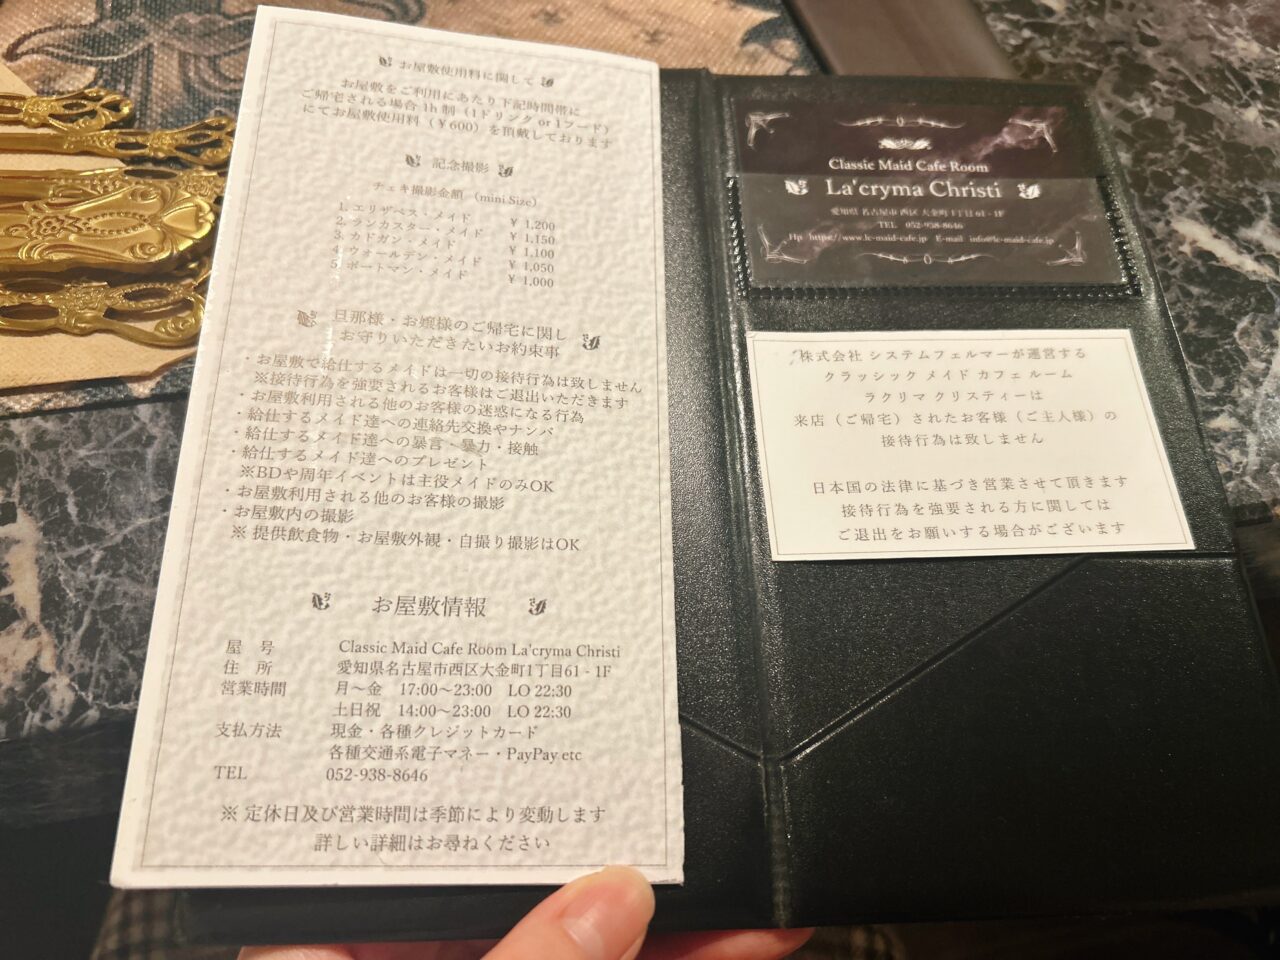 お屋敷使用料に関して
お屋敷をご利用にあたり下記時間帯に
ご帰宅される場合 1h 制（1ドリンク or 1フード）
にてお屋敷使用料（￥600）を頂戴しております
記念撮影
チェキ撮影金額 （mini Size）
1. エリザベス・メイド ￥ 1,200
2. ランカスター・メイド ￥ 1,150
3. カドガン・メイド ￥ 1,100
4. ウォールデン・メイド ￥ 1,050
5. ポートマン・メイド ￥ 1,000
旦那様・お嬢様のご帰宅に関し
お守りいただきたいお約束事
・お屋敷で給仕するメイドは一切の接待行為は致しません
※接待行為を強要されるお客様はご退出いただきます
・お屋敷利用される他のお客様の迷惑になる行為
・給仕するメイド達への連絡先交換やナンパ
・給仕するメイド達への暴言・暴力・接触
・給仕するメイド達へのプレゼント
※BDや周年イベントは主役メイドのみOK
・お屋敷利用される他のお客様の撮影
・お屋敷内の撮影
※ 提供飲食物・お屋敷外観・自撮り撮影はOK
お屋敷情報
屋 号 Classic Maid Cafe Room La'cryma Christi
住 所 愛知県名古屋市西区大金町1丁目61 - 1F
営業時間 月～金 17:00～23:00 LO 22:30
土日祝 14:00～23:00 LO 22:30
支払方法 現金・各種クレジットカード
各種交通系電子マネー・PayPay etc
TEL 052-938-8646
※ 定休日及び営業時間は季節により変動します
詳しい詳細はお尋ねください
Classic Maid Cafe Room
La'cryma Christi
愛知県 名古屋市 西区 大金町 1丁目 61 - 1F
TEL 052-938-8646
Hp https://www.lc-maid-cafe.jp E-mail info@lc-maid-cafe.jp
株式会社 システムフェルマーが運営する
クラッシック メイド カフェ ルーム
ラクリマ クリスティーは
来店（ご帰宅）されたお客様（ご主人様）の
接待行為は致しません
日本国の法律に基づき営業させて頂きます
接待行為を強要される方に関しては
ご退出をお願いする場合がございます